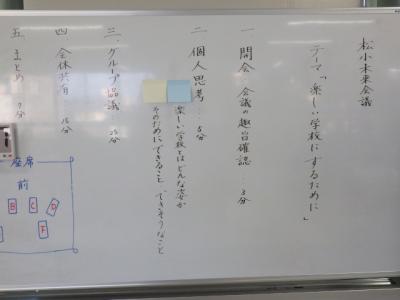 松小未来会議
テーマ「楽しい学校にするために」
一 開会・会議の趣旨確認…3分
二 個人思考…5分
楽しい学校とはどんな姿か
そのためにできること、できそうなこと
三 グループ協議…25分
四 全体共有…15分
五 まとめ…7分
座席
前
B C D
F